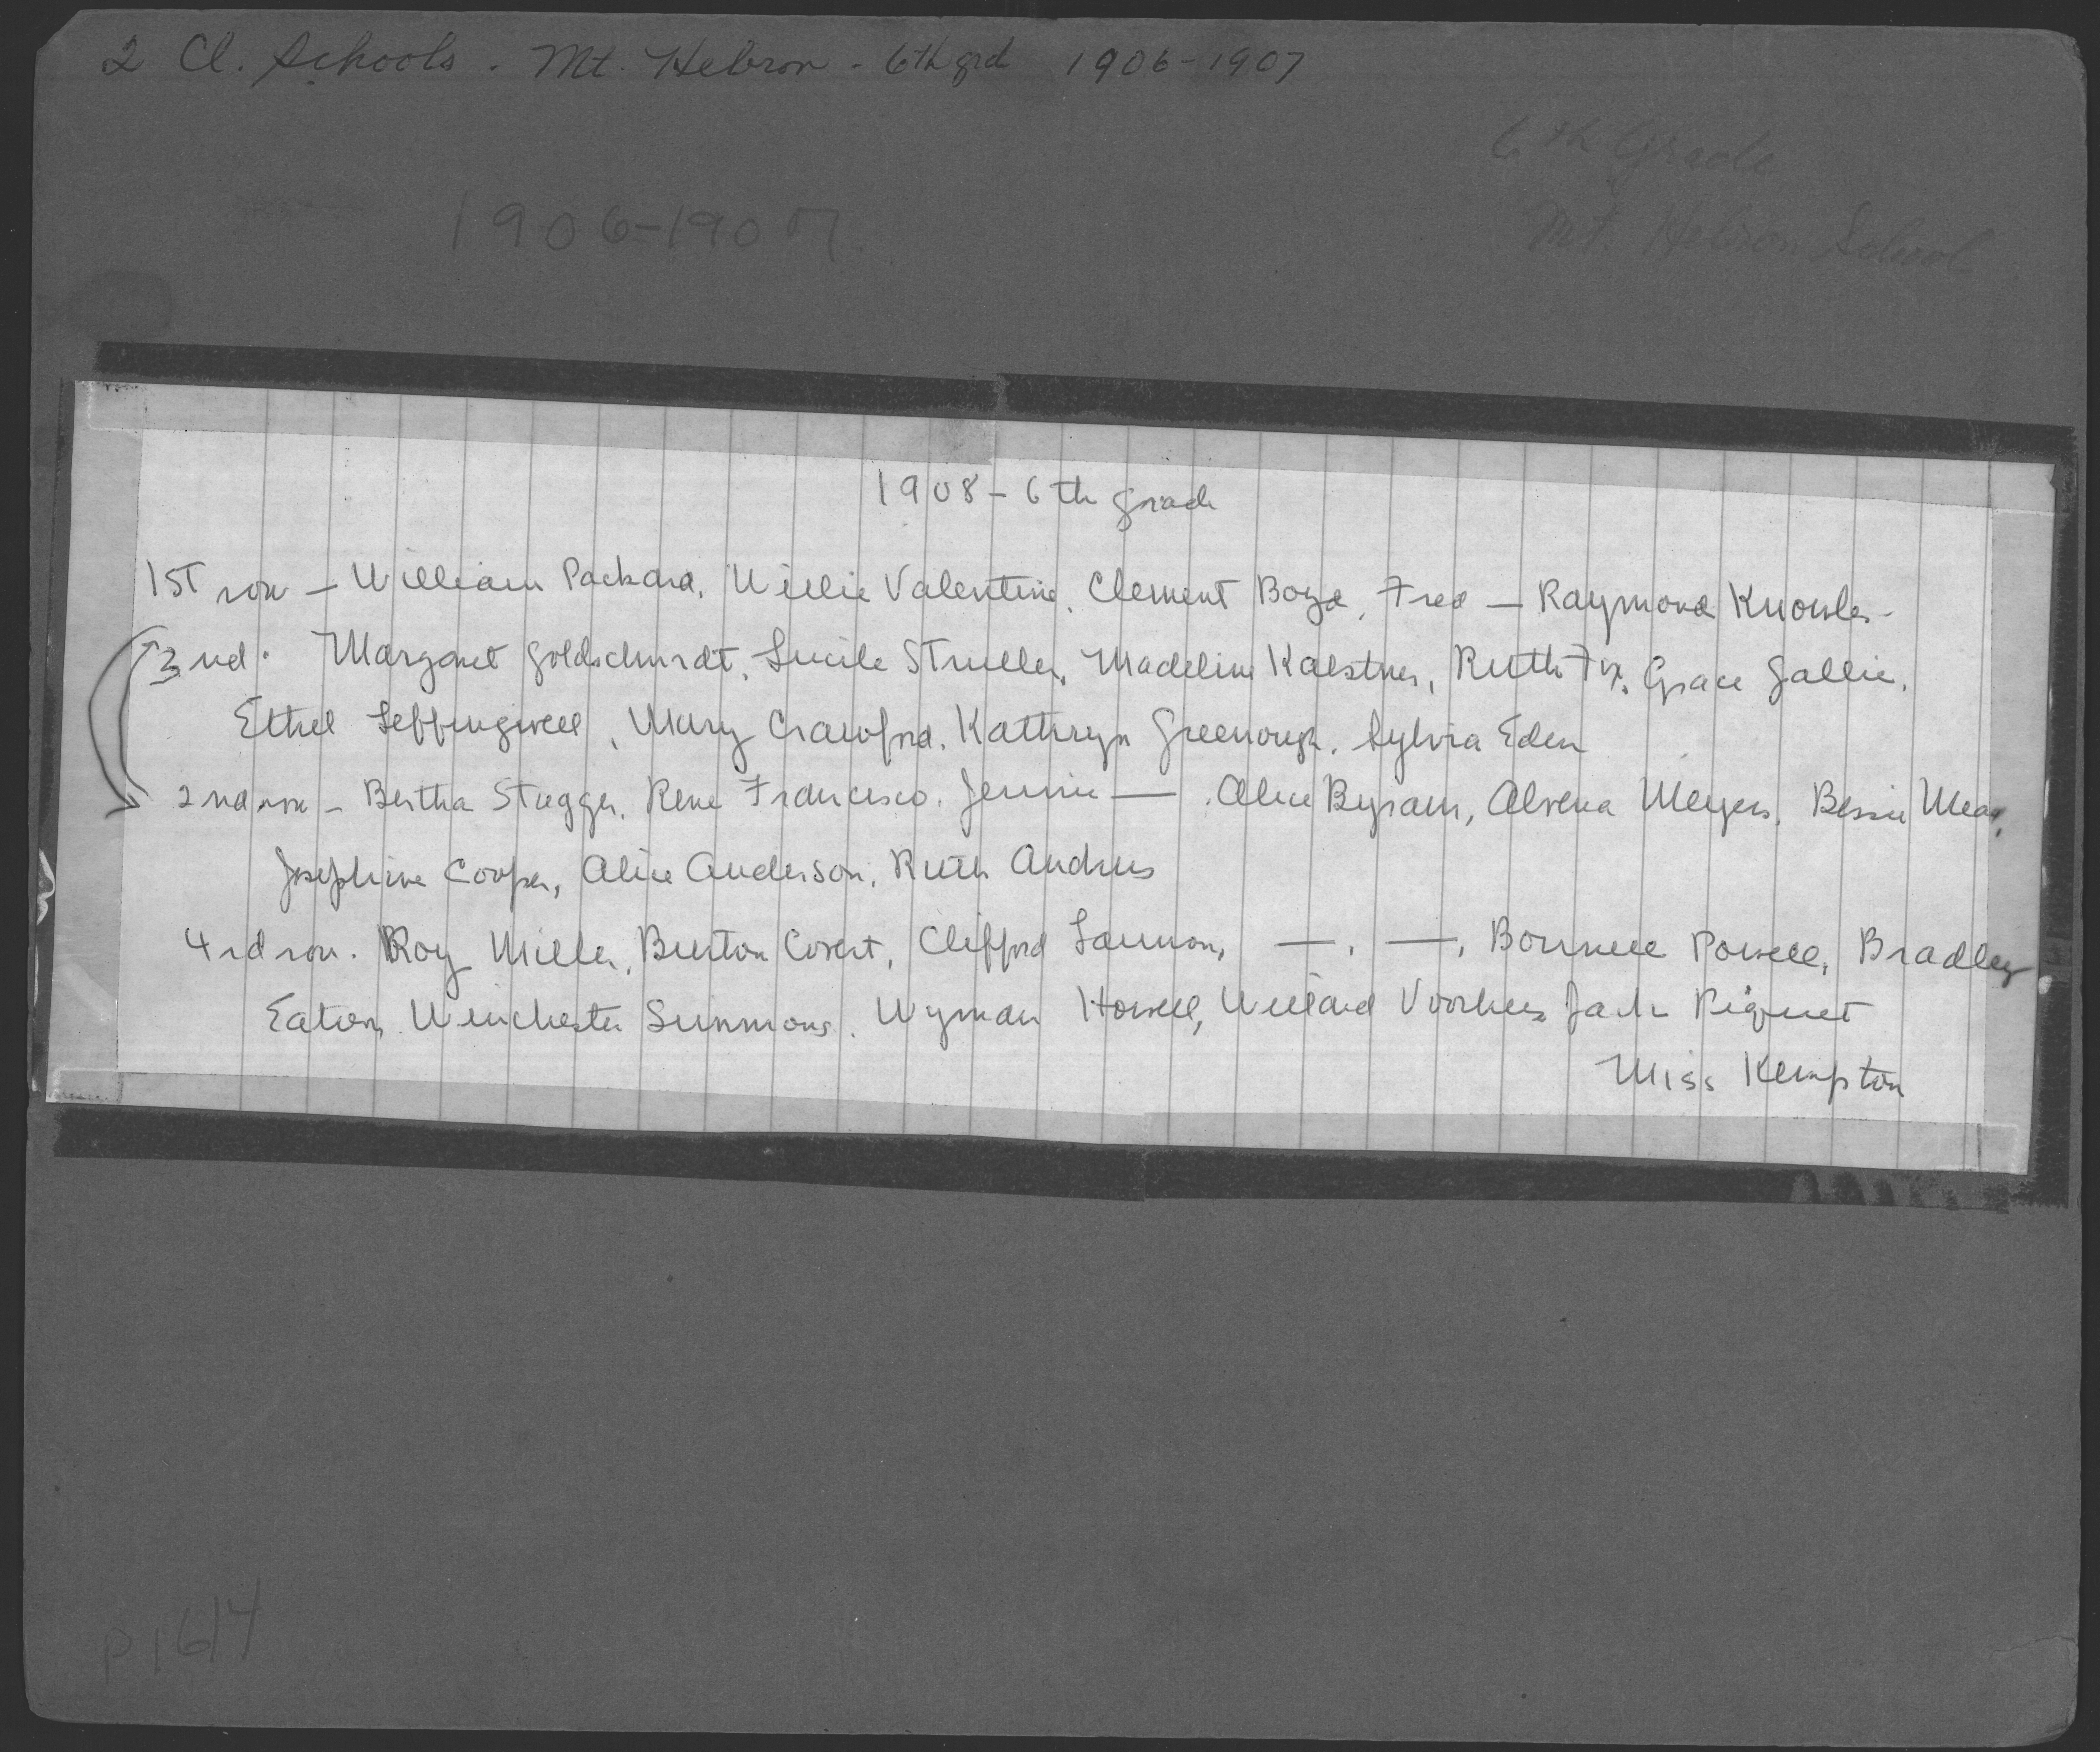 2 Cl. Schools - Mt. Hebron - 6th grd 1906-1907
6th Grade
1906-1907
Mt. Hebron School
1908 - 6th grade
1ST row - William Packard, Willie Valentine, Clement Boyd, Fred — Raymond Knowles -
3nd. Margaret Goldschmidt, Lucile Struller, Madeline Kaestner, Ruth Fix, Grace Gallie,
Ethel Leffingwell, Mary Crawford, Kathryn Greenough, Sylvia Eden
2nd row - Bertha Stagger, Rene Francisco, Jennie — , Alice Byram, Alvena Meyers, Bessie Mead,
Josephine Cooper, Alice Anderson, Ruth Andrus
4rd row. Roy Miller, Burton Covert, Clifford Lannon, —, —, Bonnell Powell, Bradley
Eaton, Winchester Simmons, Wyman Howell, Willard Voorhees Jack Piquet
Miss Kempton
p1614